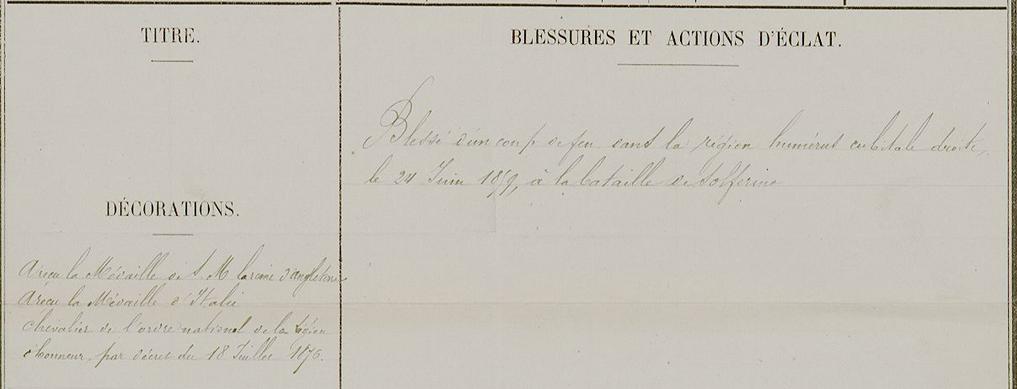 TITRE.
DÉCORATIONS.
A reçu la Médaille de S. M la reine d'angleterre
A reçu la Médaille d'Italie
chevalier de l'ordre national de la légion
d'honneur, par décret du 18 Juillet 1876.
BLESSURES ET ACTIONS D'ÉCLAT.
Blessé d'un coup de feu dans la région huméral cubitale droite,
le 24 Juin 1859, à la bataille de Solferino